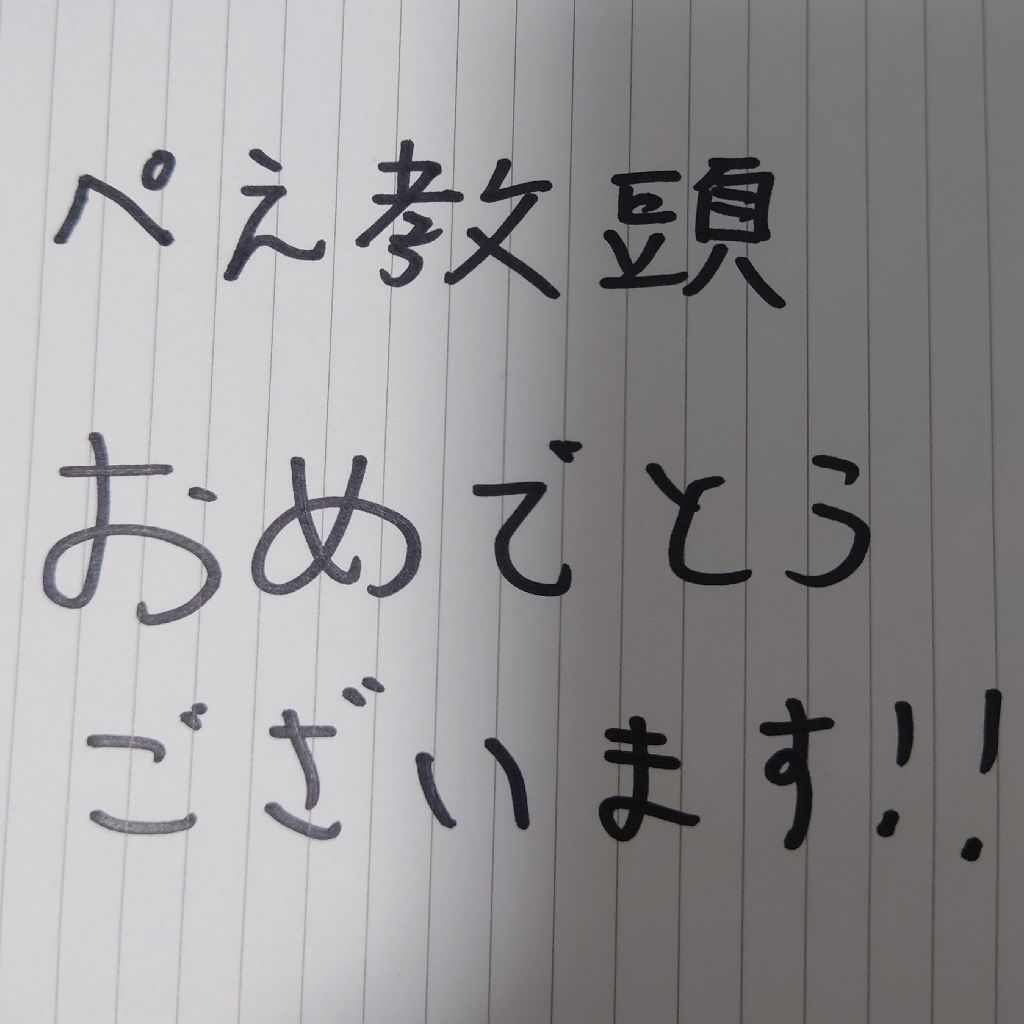 ぺえ教頭
おめでとう
ございます!!